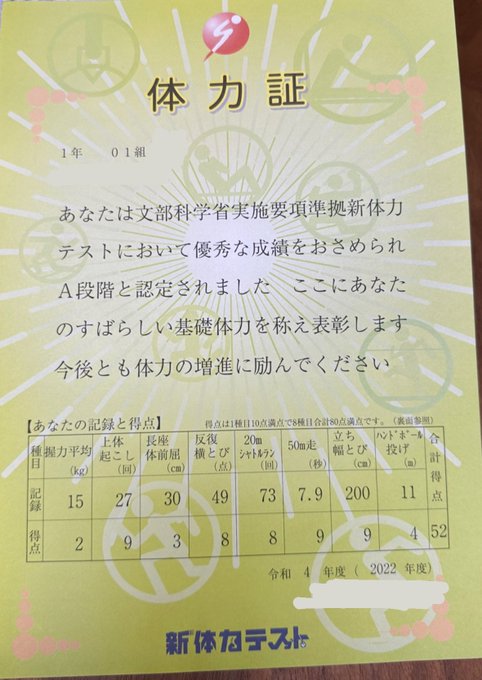 体力証
1年 01組
あなたは文部科学省実施要項準拠新体力
テストにおいて優秀な成績をおさめられ
A段階と認定されました ここにあなた
のすばらしい基礎体力を称え表彰します
今後とも体力の増進に励んでください
【あなたの記録と得点】 得点は1種目10点満点で8種目合計80点満点です。(裏面参照)
種目 握力平均(kg) 上体起こし(回) 長座体前屈(cm) 反復横とび(点) 20mシャトルラン(回) 50m走(秒) 立ち幅とび(cm) ハンドボール投げ(m) 合計得点
記録 15 27 30 49 73 7.9 200 11
得点 2 9 3 8 8 9 9 4 52
令和 4 年度( 2022 年度)
新体力テスト